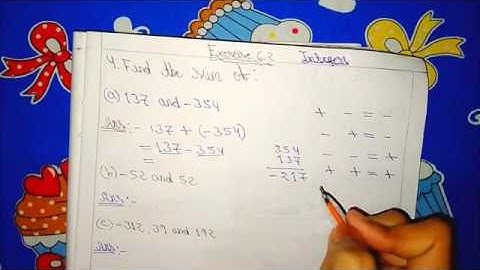 Exercise 6.2 Integers
4. Find the sum of:
(a) 137 and -354
Ans:- 137 + (-354)
= 137 - 354
=
(b) -52 and 52
Ans:-
(c) -312, 39 and 192
Ans:-
+ - = -
- + = -
- - = +
+ + = +
354
137
-217